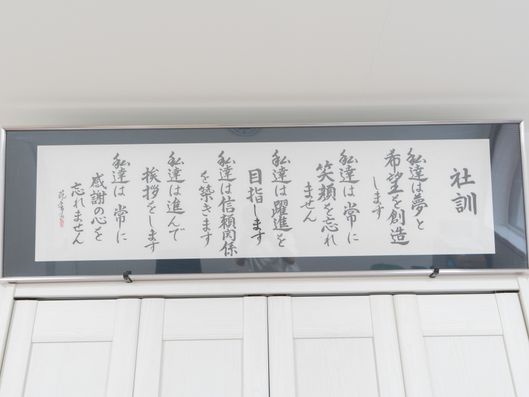 社訓
私達は夢と
希望を創造
します
私達は常に
笑顔を忘れ
ません
私達は躍進を
目指します
私達は信頼関係
を築きます
私達は進んで
挨拶をします
私達は常に
感謝の心を
忘れません